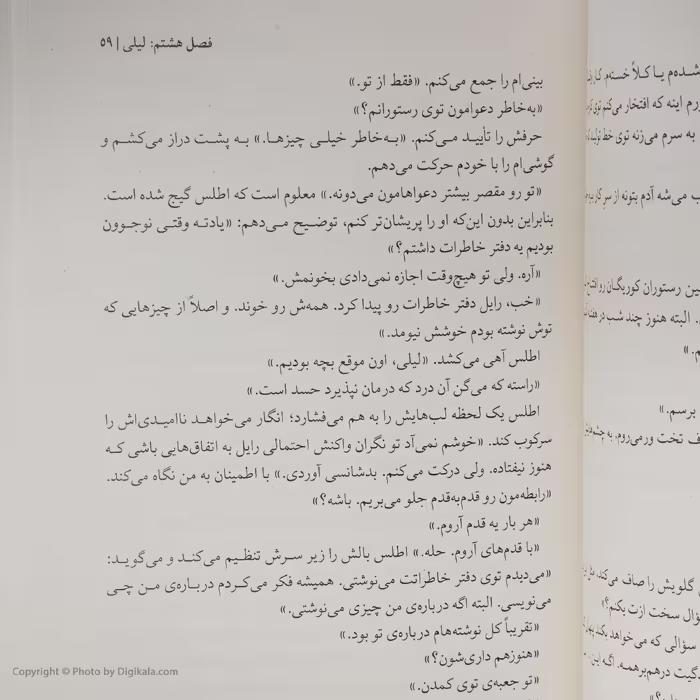 فصل هشتم: لیلی | ۵۹
بینی‌ام را جمع می‌کنم. «فقط از تو.»
«به‌خاطر دعوامون توی رستورانم؟»
حرفش را تأیید می‌کنم. «به‌خاطر خیلی چیزها.» به پشت دراز می‌کشم و
گوشی‌ام را با خودم حرکت می‌دهم.
«تو رو مقصر بیشتر دعواهامون می‌دونه.» معلوم است که اطلس گیج شده است.
بنابراین بدون این‌که او را پریشان‌تر کنم، توضیح می‌دهم: «یادته وقتی نوجوون
بودیم یه دفتر خاطرات داشتم؟»
«آره. ولی تو هیچ‌وقت اجازه نمی‌دادی بخونمش.»
«خب، رایل دفتر خاطرات رو پیدا کرد. همه‌ش رو خوند. و اصلاً از چیزهایی که
توش نوشته بودم خوشش نیومد.»
اطلس آهی می‌کشد. «لیلی، اون موقع بچه بودیم.»
«راسته که می‌گن آن درد که درمان نپذیرد حسد است.»
اطلس یک لحظه لب‌هایش را به هم می‌فشارد؛ انگار می‌خواهد ناامیدی‌اش را
سرکوب کند. «خوشم نمی‌آد تو نگران واکنش احتمالی رایل به اتفاق‌هایی باشی که
هنوز نیفتاده. ولی درکت می‌کنم. بدشانسی آوردی.» با اطمینان به من نگاه می‌کند.
«رابطه‌مون رو قدم‌به‌قدم جلو می‌بریم. باشه؟»
«هر بار یه قدم آروم.»
«با قدم‌های آروم. حله.» اطلس بالش را زیر سرش تنظیم می‌کند و می‌گوید:
«می‌دیدم توی دفتر خاطراتت می‌نوشتی. همیشه فکر می‌کردم درباره‌ی من چی
می‌نویسی. البته اگه درباره‌ی من چیزی می‌نوشتی.»
«تقریباً کل نوشته‌هام درباره‌ی تو بود.»
«هنوزهم داری‌شون؟»
«تو جعبه‌ی توی کمدن.»
شده‌م یا کلاً خسته‌م.
رم اینه که افتخار می‌کنم توی
به سرم می‌زنه توی خط
ب می‌شه آدم بتونه از سر کار
ین رستوران کوریگان رو
. البته هنوز چند شب در هفته
م.»
برسم.»
ف تخت ورمی‌روم، به
گلویش را صاف می‌کند،
ؤال سخت ازت بکنم؟»
سؤالی که می‌خواهد بکند
گیت درهم‌برهمه. اگه این
Copyright © Photo by Digikala.com